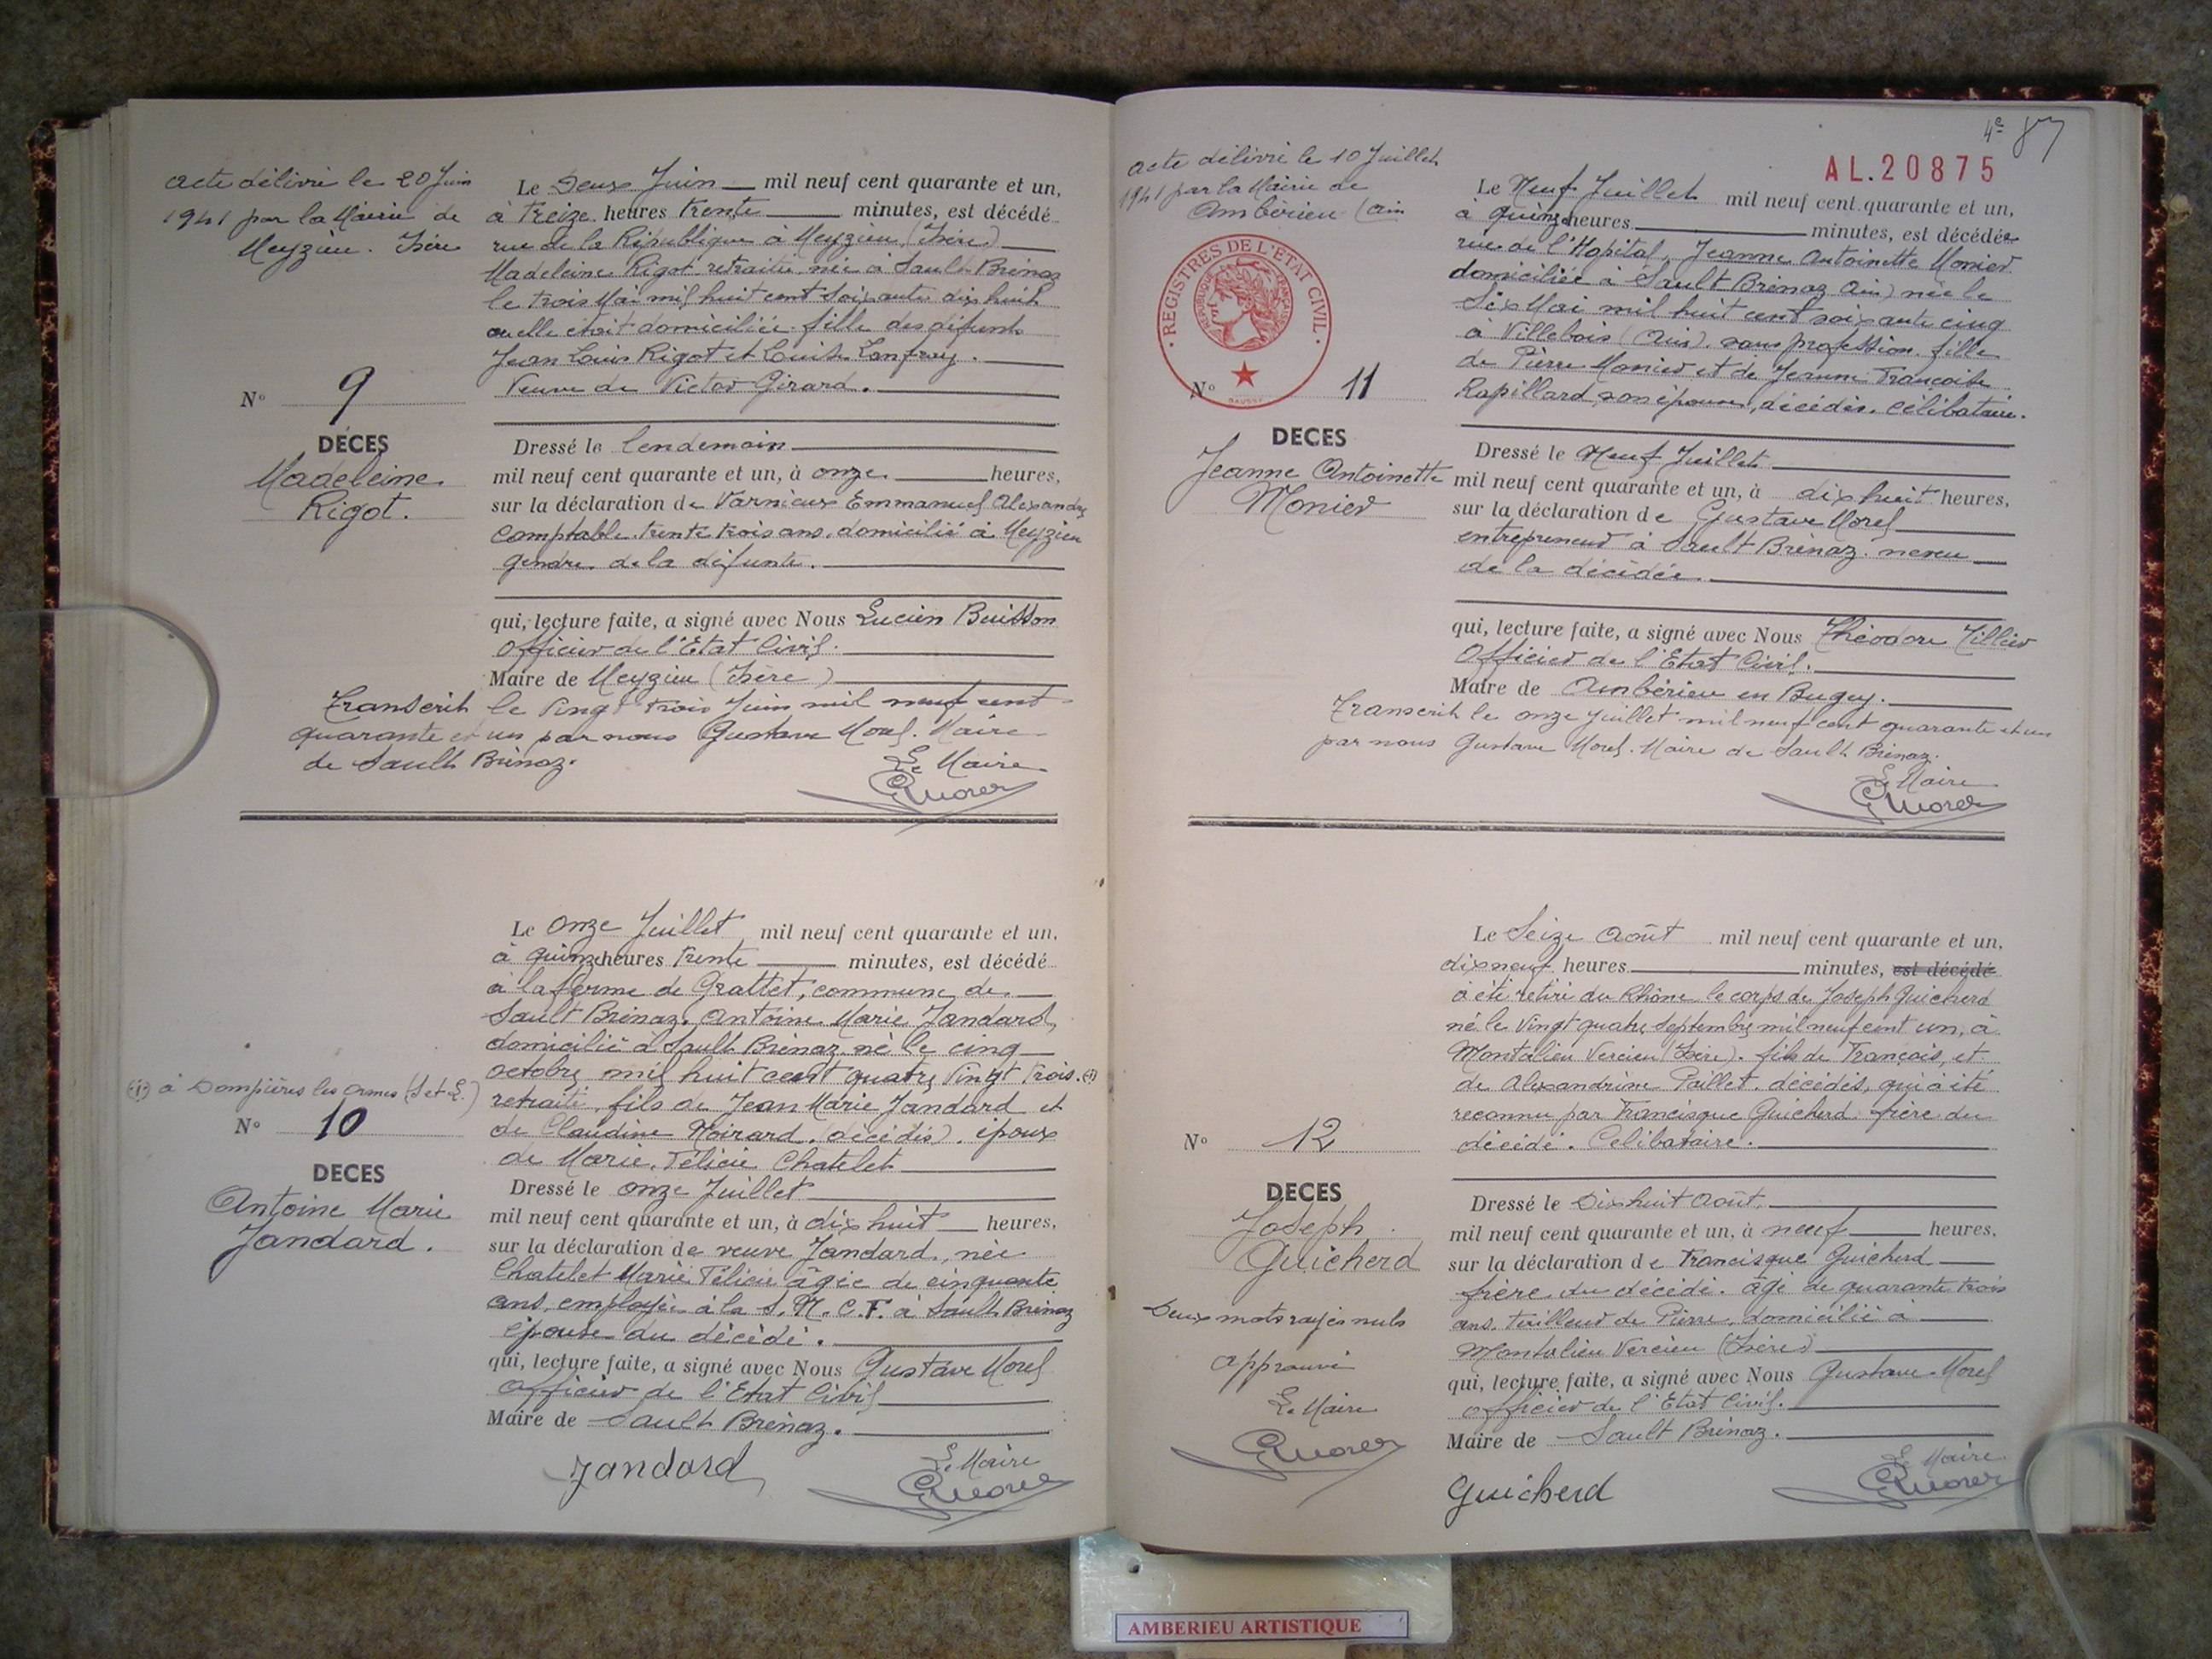 acte délivré le 20 Juin
1941 par la Mairie de
Meyzieu. Isère
Le Deux Juin mil neuf cent quarante et un,
à Treize heures trente minutes, est décédé
rue de la République à Meyzieu (Isère)
Madeleine Rigot retraitée née à Sault Brénaz
le trois Mai mil huit cent soixante dix huit
ou elle était domiciliée fille des défunts
Jean Louis Rigot et Louise Lanfrey.
Veuve de Victor Girard.
N° 9
DÉCES
Madeleine
Rigot.
Dressé le lendemain
mil neuf cent quarante et un, à onze heures,
sur la déclaration de Varnieux Emmanuel Alexandre
comptable. trente trois ans. domicilié à Meyzieu
gendre de la défunte.
qui, lecture faite, a signé avec Nous Lucien Buisson
Officier de l'Etat Civil.
Maire de Meyzieu (Isère)
Transcrit le vingt trois Juin mil neuf cent
quarante et un par nous Gustave Morel. Maire
de Sault Brénaz.
Le Maire
GMorel
Le onze Juillet mil neuf cent quarante et un,
à quinze heures trente minutes, est décédé
à la ferme de Grattet, commune de
Sault Brénaz. Antoine Marie Jandard,
domicilié à Sault Brénaz né le cinq
octobre mil huit cent quatre vingt trois. (1)
retraité, fils de Jean Marie Jandard et
de Claudine Noirard. (décédés). époux
de Marie. Félicie Chatelet
(1) à Dompierres les Ormes (S et L.)
N° 10
DECES
Antoine Marie
Jandard.
Dressé le onze Juillet
mil neuf cent quarante et un, à dix huit heures,
sur la déclaration de veuve Jandard, née
Chatelet Marie Félicie âgée de cinquante
ans, employée à la S.N.C.F. à Sault Brénaz
épouse du décédé.
qui, lecture faite, a signé avec Nous Gustave Morel
Officier de l'Etat Civil
Maire de Sault Brénaz.
Le Maire
Jandard
GMorel
4e 87
AL.20875
acte délivré le 10 Juillet
1941 par la Mairie de
Ambérieu (ain
REGISTRES DE L'ETAT CIVIL
REPUBLIQUE FRANÇAISE
Le Neuf Juillet mil neuf cent quarante et un,
à quinze heures minutes, est décédée
rue de l'Hopital, Jeanne Antoinette Monier
domiciliée à Sault Brénaz Ain) née le
Six Mai mil huit cent soixante cinq
à Villebois (Ain). sans profession. fille
de Pierre Monier et de Jeanne Françoise
Rapillard, son épouse, décédés. Célibataire.
N° 11
DECES
Jeanne Antoinette
Monier
Dressé le Neuf Juillet
mil neuf cent quarante et un, à dix huit heures,
sur la déclaration de Gustave Morel
entrepreneur à Sault Brénaz. neveu
de la décédée.
qui, lecture faite, a signé avec Nous Théodore Tillier
Officier de l'Etat Civil.
Maire de Ambérieu en Bugey.
Transcrit le onze Juillet mil neuf cent quarante et un
par nous Gustave Morel. Maire de Sault Brénaz.
Le Maire
GMorel
Le Seize Août mil neuf cent quarante et un,
dix neuf heures minutes, est décédé
a été retiré du Rhône le corps de Joseph Guicherd
né le vingt quatre Septembre mil neuf cent un, à
Montalieu Vercieu (Isère). fils de François, et
de Alexandrine Paillet. décédés, qui a été
reconnu par Francisque Guicherd frère du
décédé. Célibataire.
N° 12
DECES
Joseph
Guicherd
Deux mots rayés nuls
Approuvé
Le Maire
GMorel
Dressé le Dix huit Août,
mil neuf cent quarante et un, à neuf heures,
sur la déclaration de Francisque Guicherd
frère du décédé. âgé de quarante trois
ans. tailleur de Pierre, domicilié à
Montalieu Vercieu (Isère)
qui, lecture faite, a signé avec Nous Gustave Morel
Officier de l'Etat Civil.
Maire de Sault Brénaz.
Le Maire
Guicherd
GMorel
AMBERIEU ARTISTIQUE